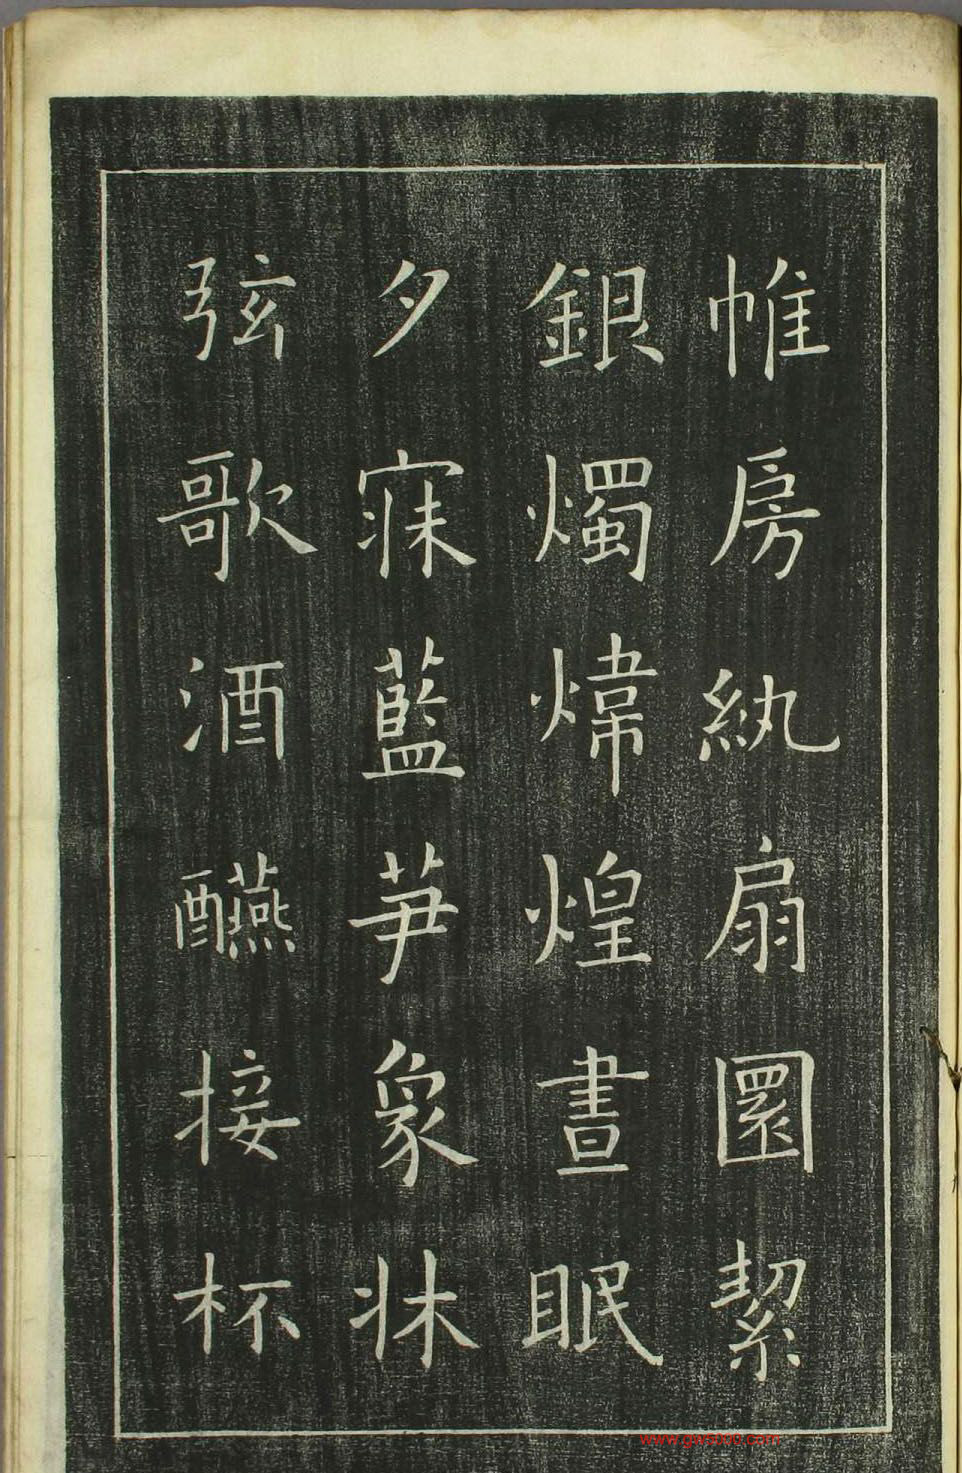 帷房紈扇圎絜
銀燭煒煌晝眠
夕寐藍笋象牀
弦歌酒讌接杯
www.gwsixi0.com